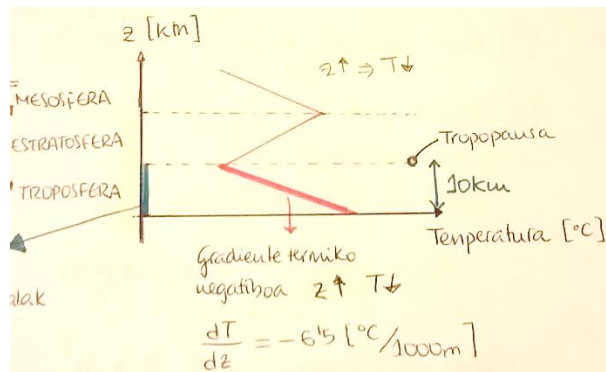 z [km]
z↑ ⇒ T↓
MESOSFERA
ESTRATOSFERA
Tropopausa
TROPOSFERA
10km
Tenperatura [°C]
Gradiente termiko
negatiboa z↑ T↓
alak
dT/dz = -6'5 [°C/1000m]